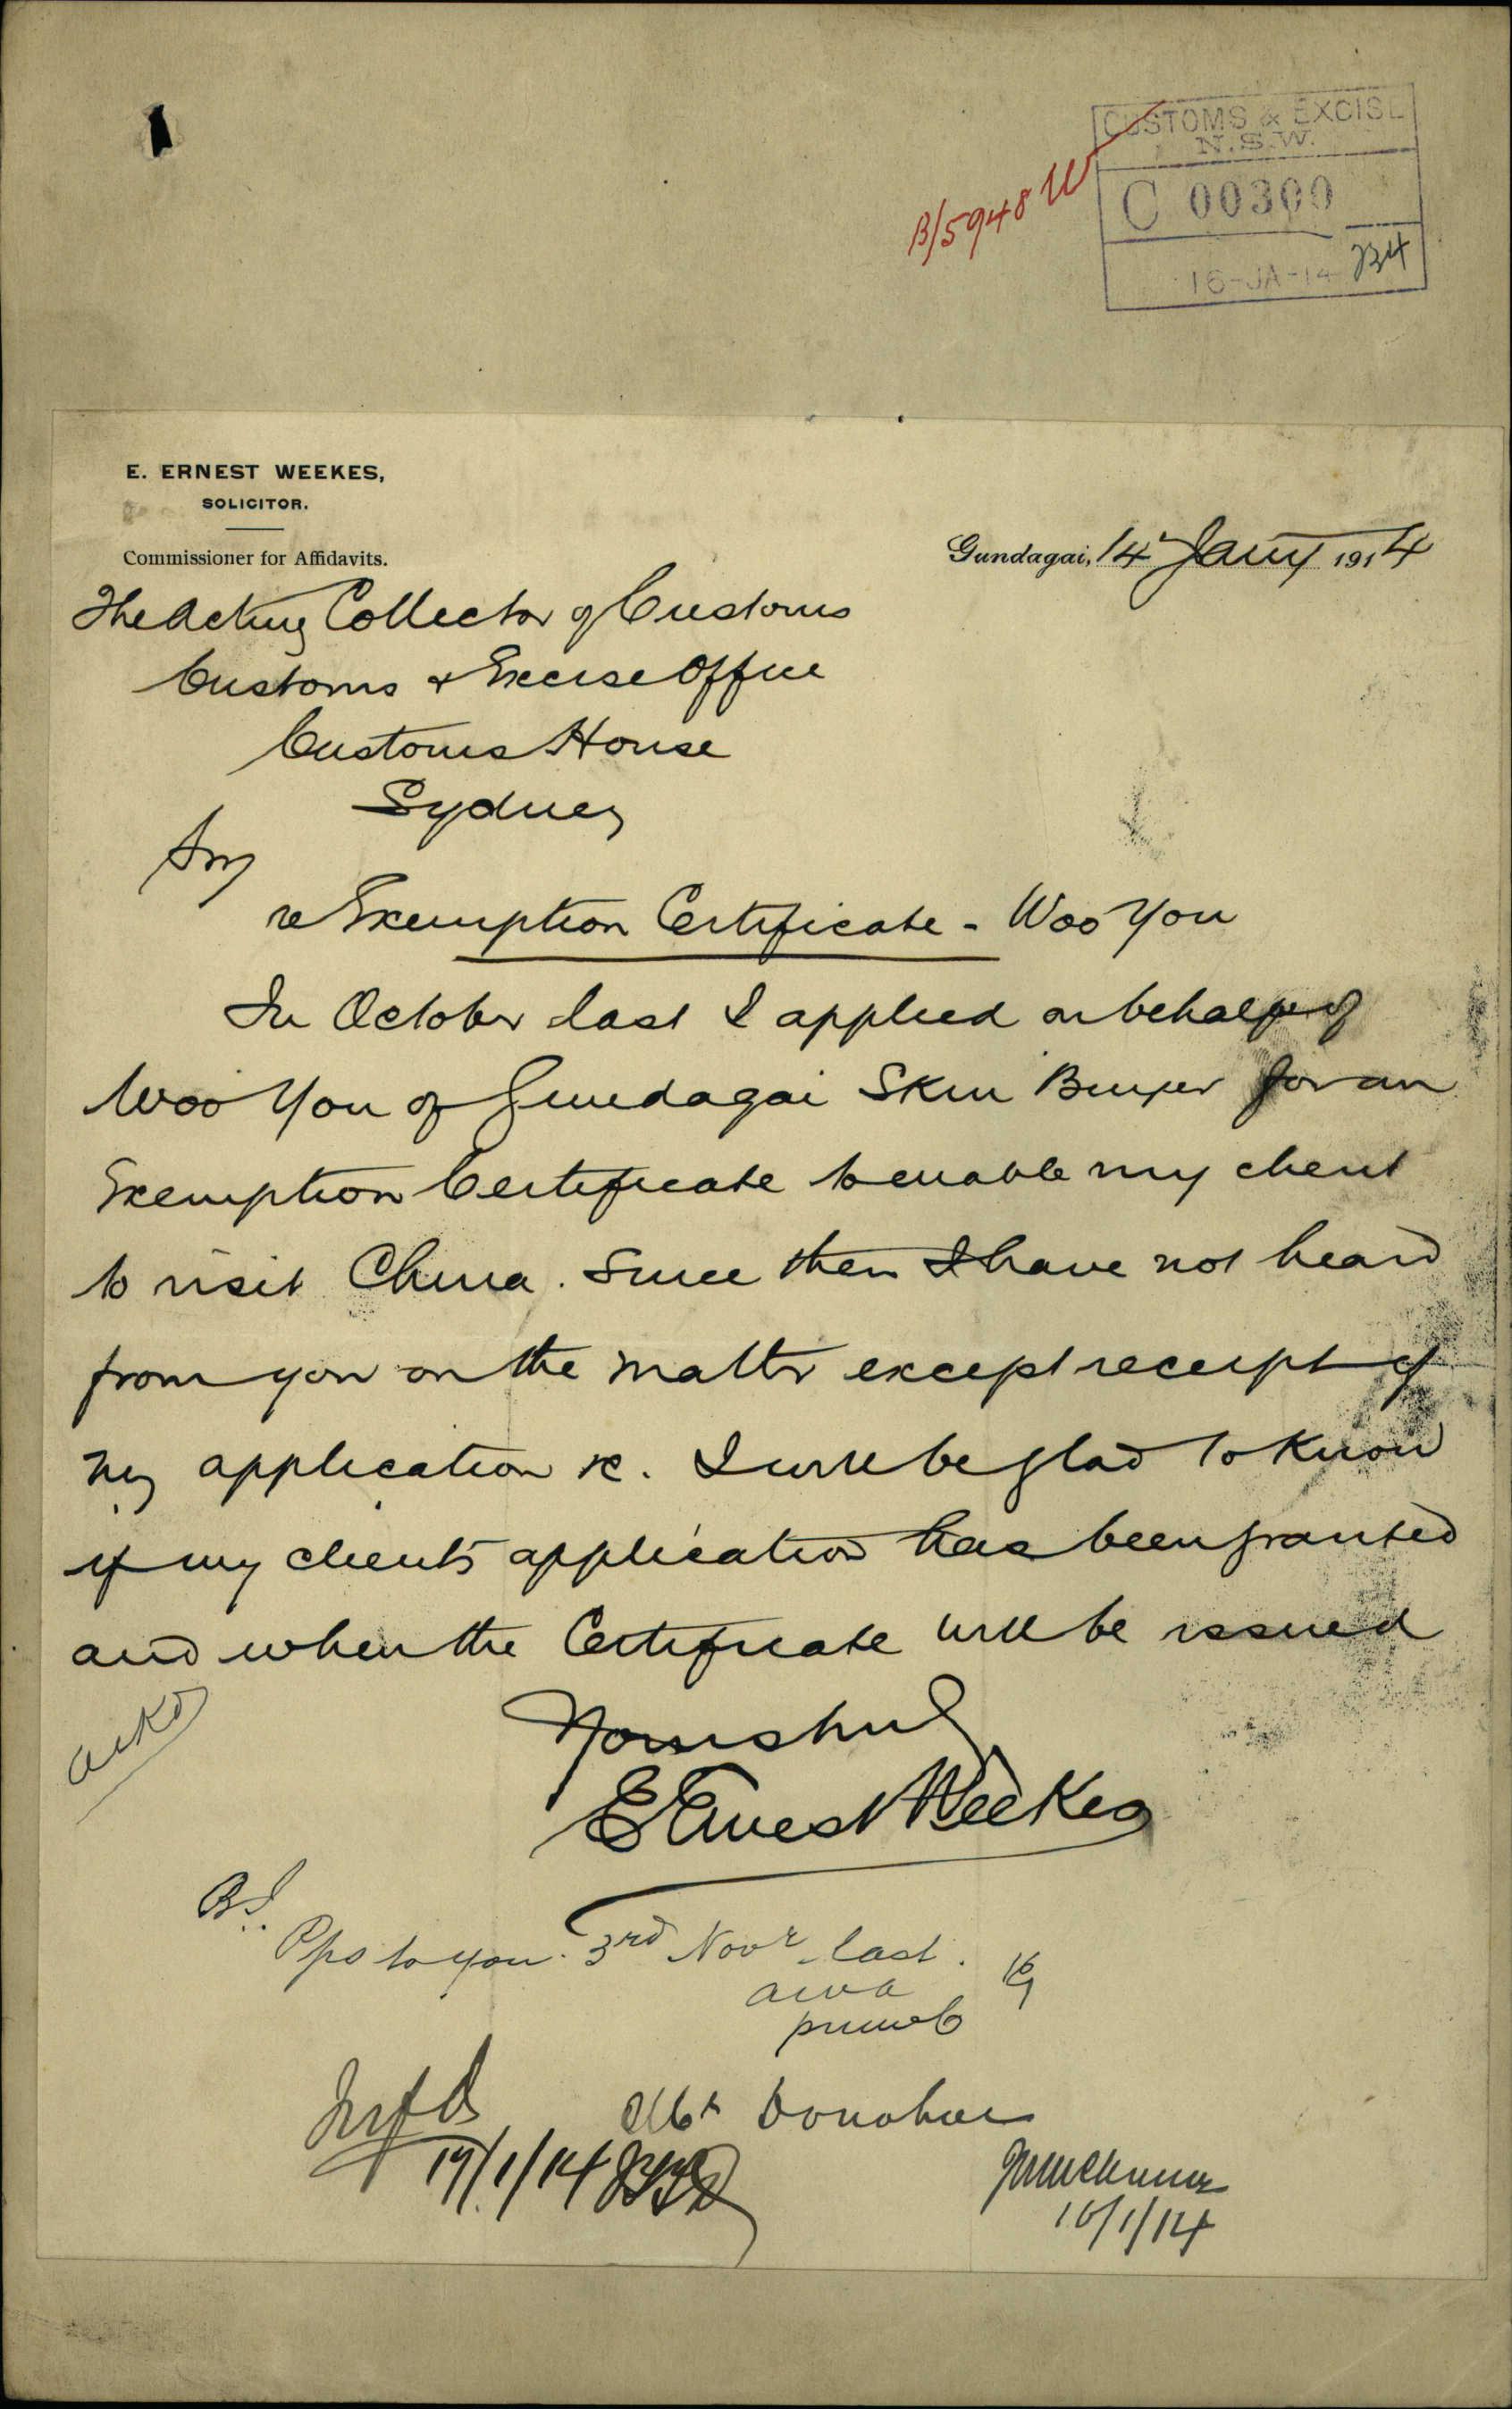 B/5948 W
CUSTOMS & EXCISE
N.S.W.
C 00300
16-JA-14 B4
E. ERNEST WEEKES,
SOLICITOR.
Commissioner for Affidavits.
Gundagai, 14 Jany 1914
The Acting Collector of Customs
Customs & Excise Office
Customs House
Sydney
Sir
re Exemption Certificate - Woo You
In October last I applied on behalf of
Woo You of Gundagai Skin Buyer for an
Exemption Certificate to enable my client
to visit China. Since then I have not heard
from you on the matter except receipt of
my application &c. I will be glad to know
if my clients application has been granted
and when the Certificate will be issued
Yours truly
E Ernest Weekes
ackd
B.I.
Pps to you 3rd Novr last.
Mr Donohoe
19/1/14
16/1/14